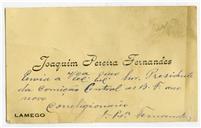 Joaquim Pereira Fernandes
Envia a V. Ex.ª Snr. Presidente
da Comissão Central as B. F. ano
novo
Correligionario
J. Per. Fernandes
LAMEGO